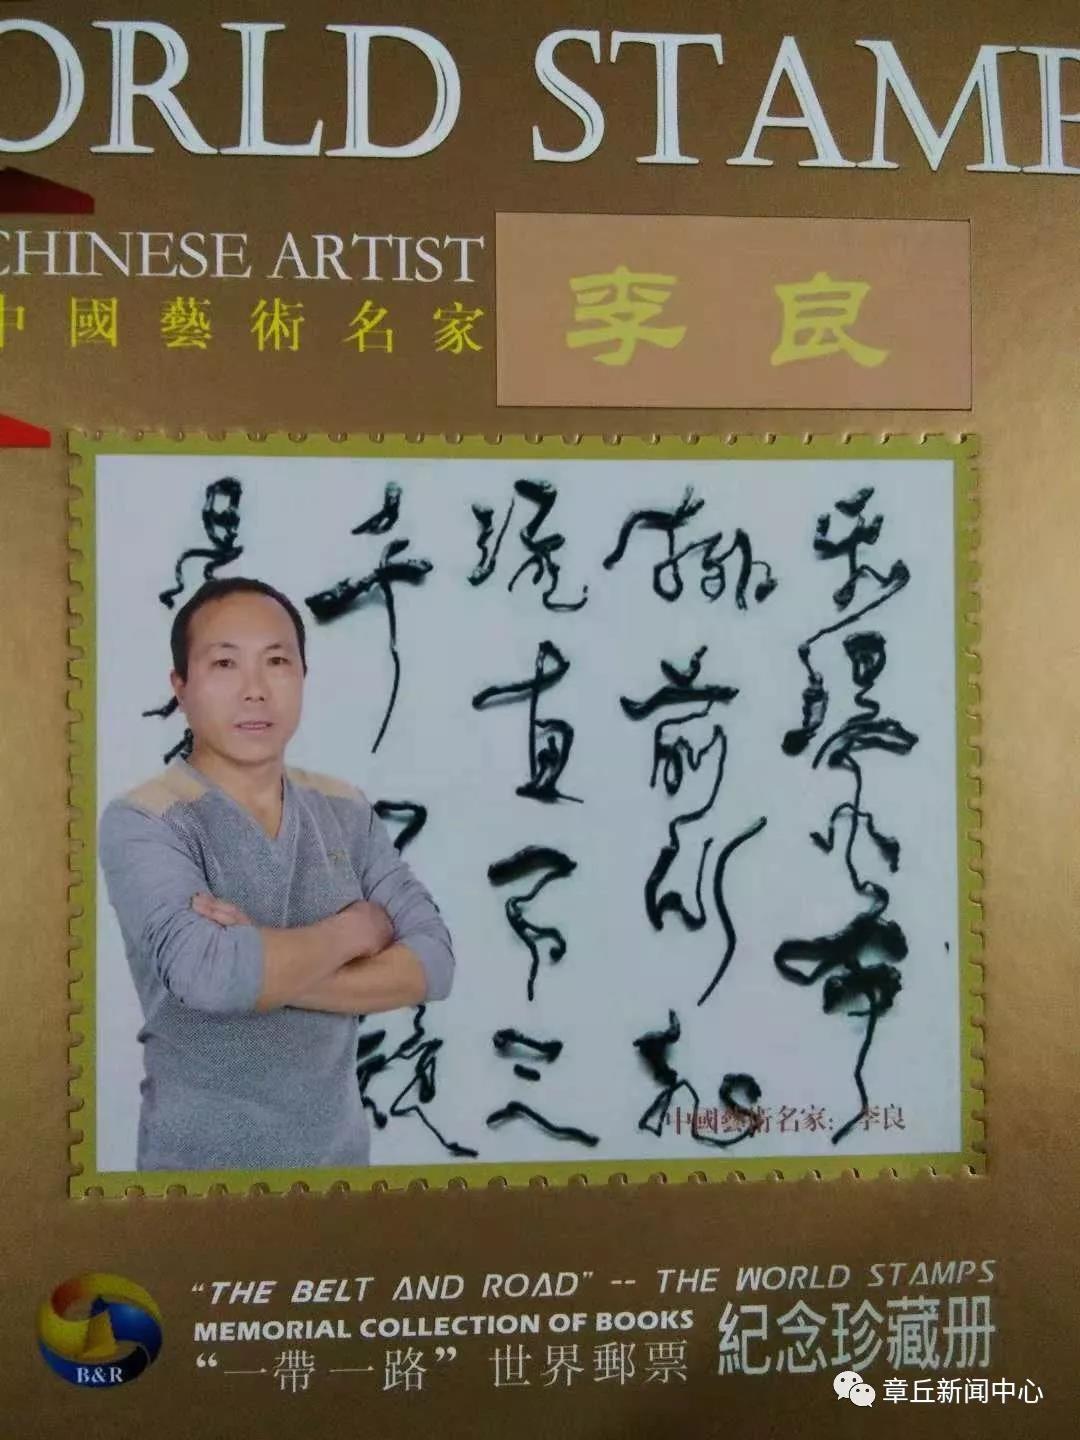 ORLD STAMP
CHINESE ARTIST
中國藝術名家
李良
流直下三
千
前川
中國藝術名家：李良
"THE BELT AND ROAD" -- THE WORLD STAMPS
MEMORIAL COLLECTION OF BOOKS
“一帶一路”世界郵票
紀念珍藏册
B&R
章丘新闻中心